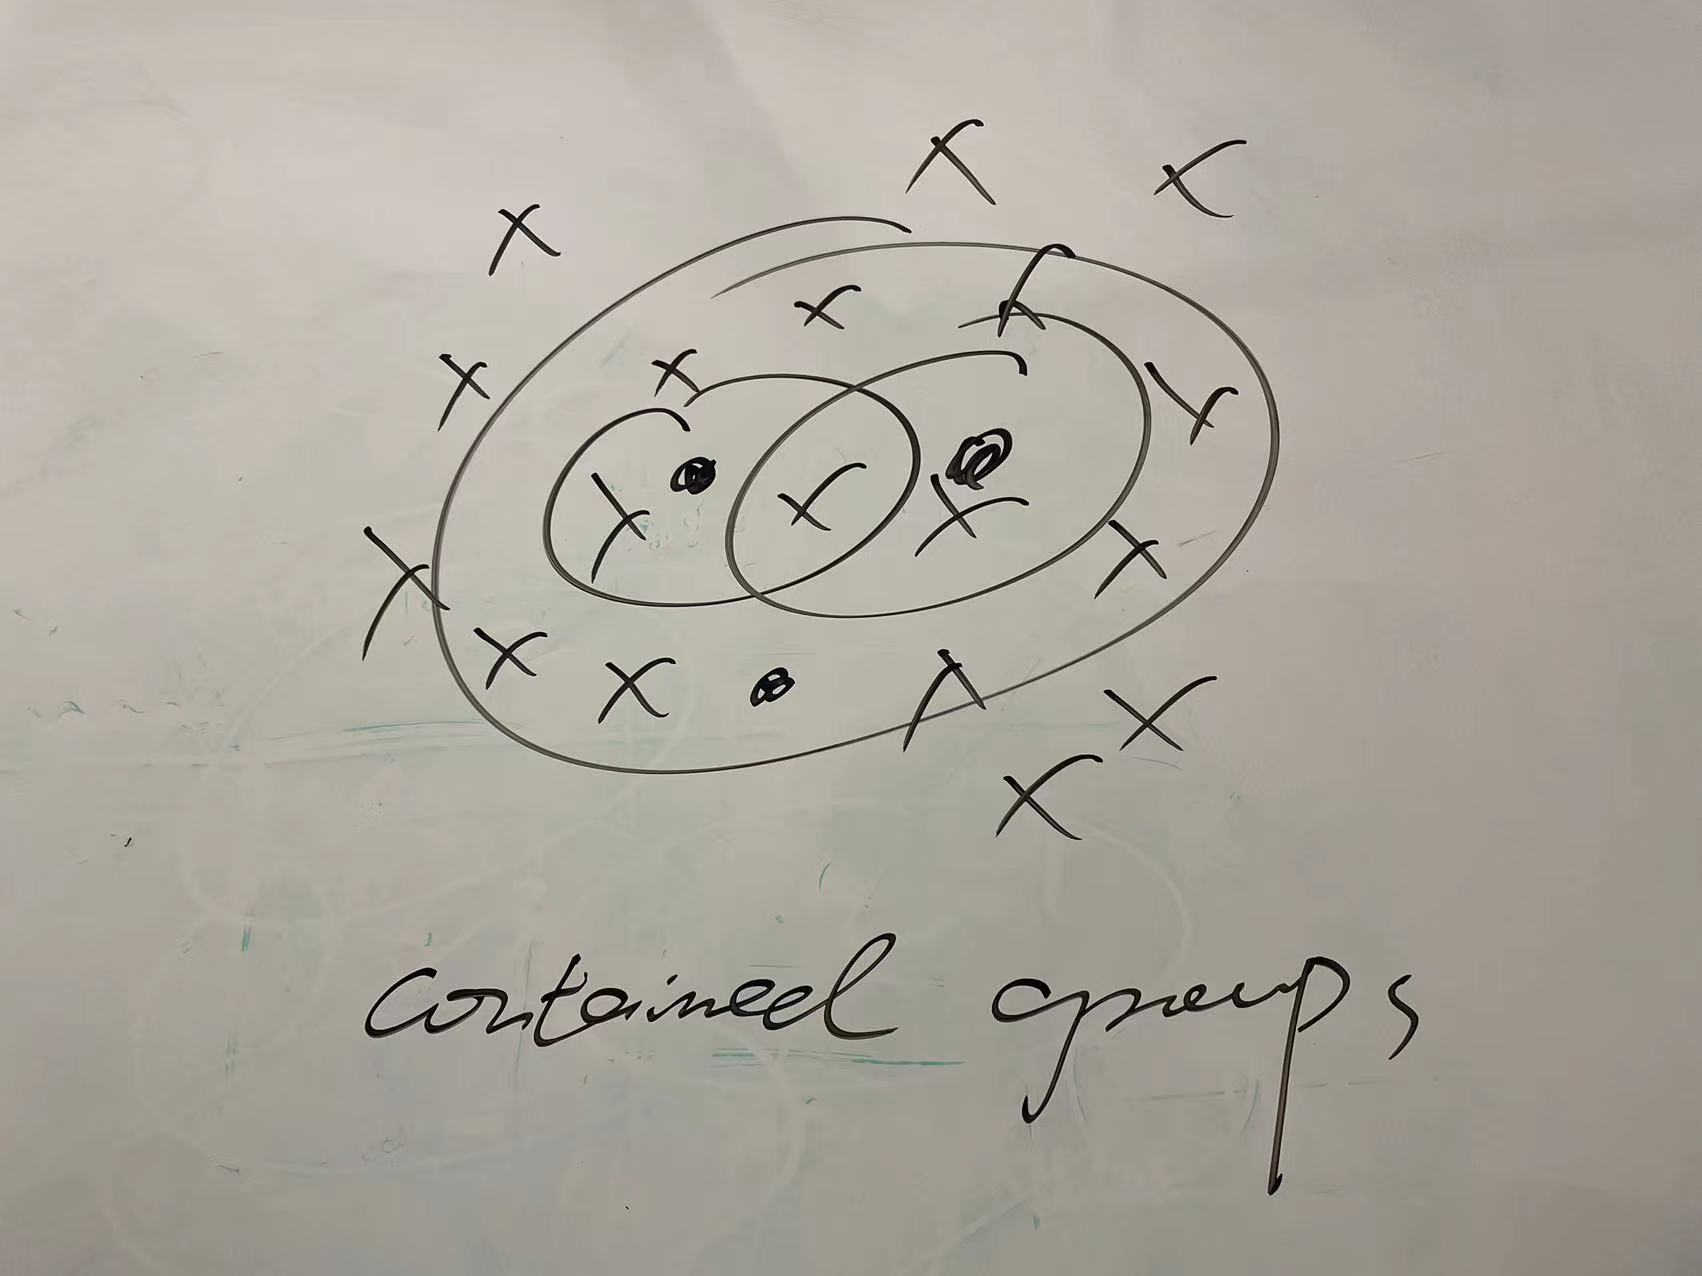 contained groups